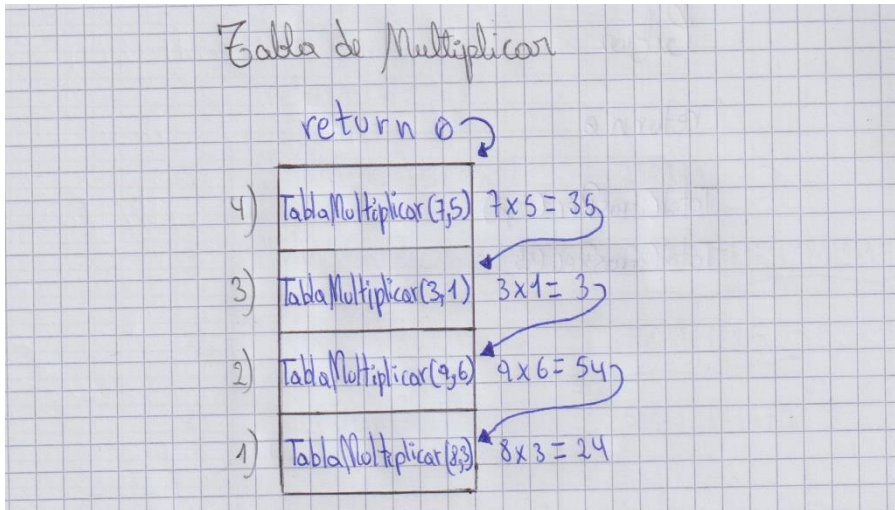 Tabla de Multiplicar
return 0
4) TablaMultiplicar(7,5) 7x5=35
3) TablaMultiplicar(3,1) 3x1=3
2) TablaMultiplicar(9,6) 9x6=54
1) TablaMultiplicar(8,3) 8x3=24